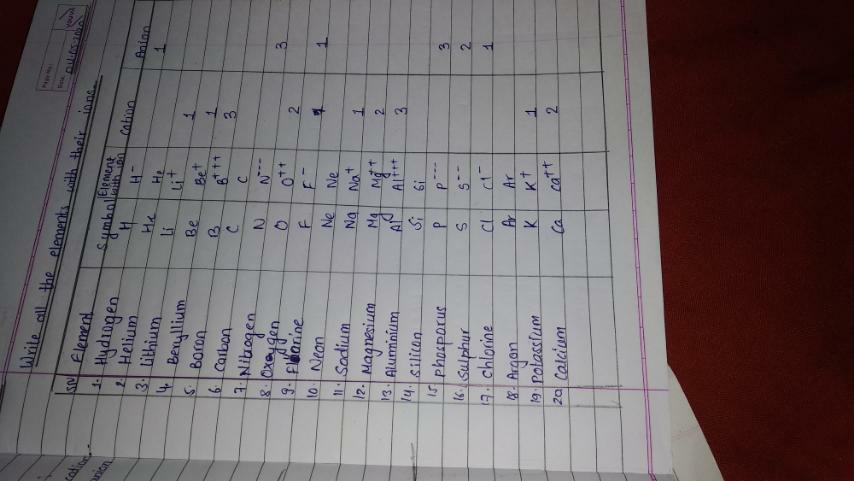 Write all the elements with their ions.
SN Element Symbol Element with ion Cation Anion
1. Hydrogen H H⁻ 1
2. Helium He He
3. Lithium Li Li⁺ 1
4. Beryllium Be Be⁺ 1
5. Boron B B⁺⁺⁺ 3
6. Carbon C C
7. Nitrogen N N⁻⁻⁻ 3
8. Oxeygen O O⁺⁺ 2
9. Florine F F⁻ 1
10. Neon Ne Ne
11. Sodium Na Na⁺ 1
12. Magnesium Mg Mg⁺⁺ 2
13. Aluminium Al Al⁺⁺⁺ 3
14. Silicon Si Si
15. Phosporus P P⁻⁻⁻ 3
16. Sulphur S S⁻⁻ 2
17. Chlorine Cl Cl⁻ 1
18. Argon Ar Ar
19. Potassium K K⁺ 1
20 Calcium Ca Ca⁺⁺ 2